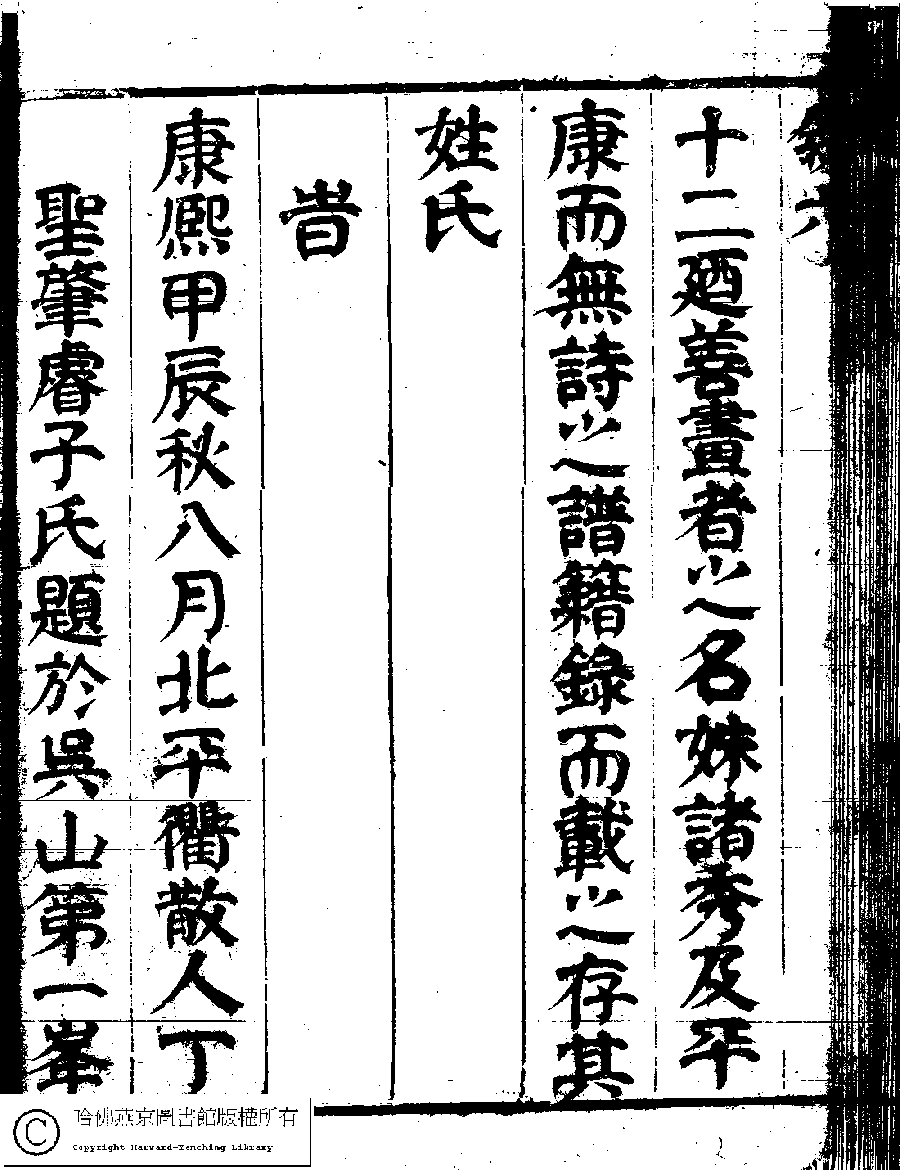 十二廼善畫者之名姝諸秀及平
康而無詩之譜籍錄而載之存其
姓氏
旹
康熙甲辰秋八月北平衢散人丁
聖肇睿子氏題於吳山第一峯
哈佛燕京圖書館版權所有
Copyright Harvard-Yenching Library